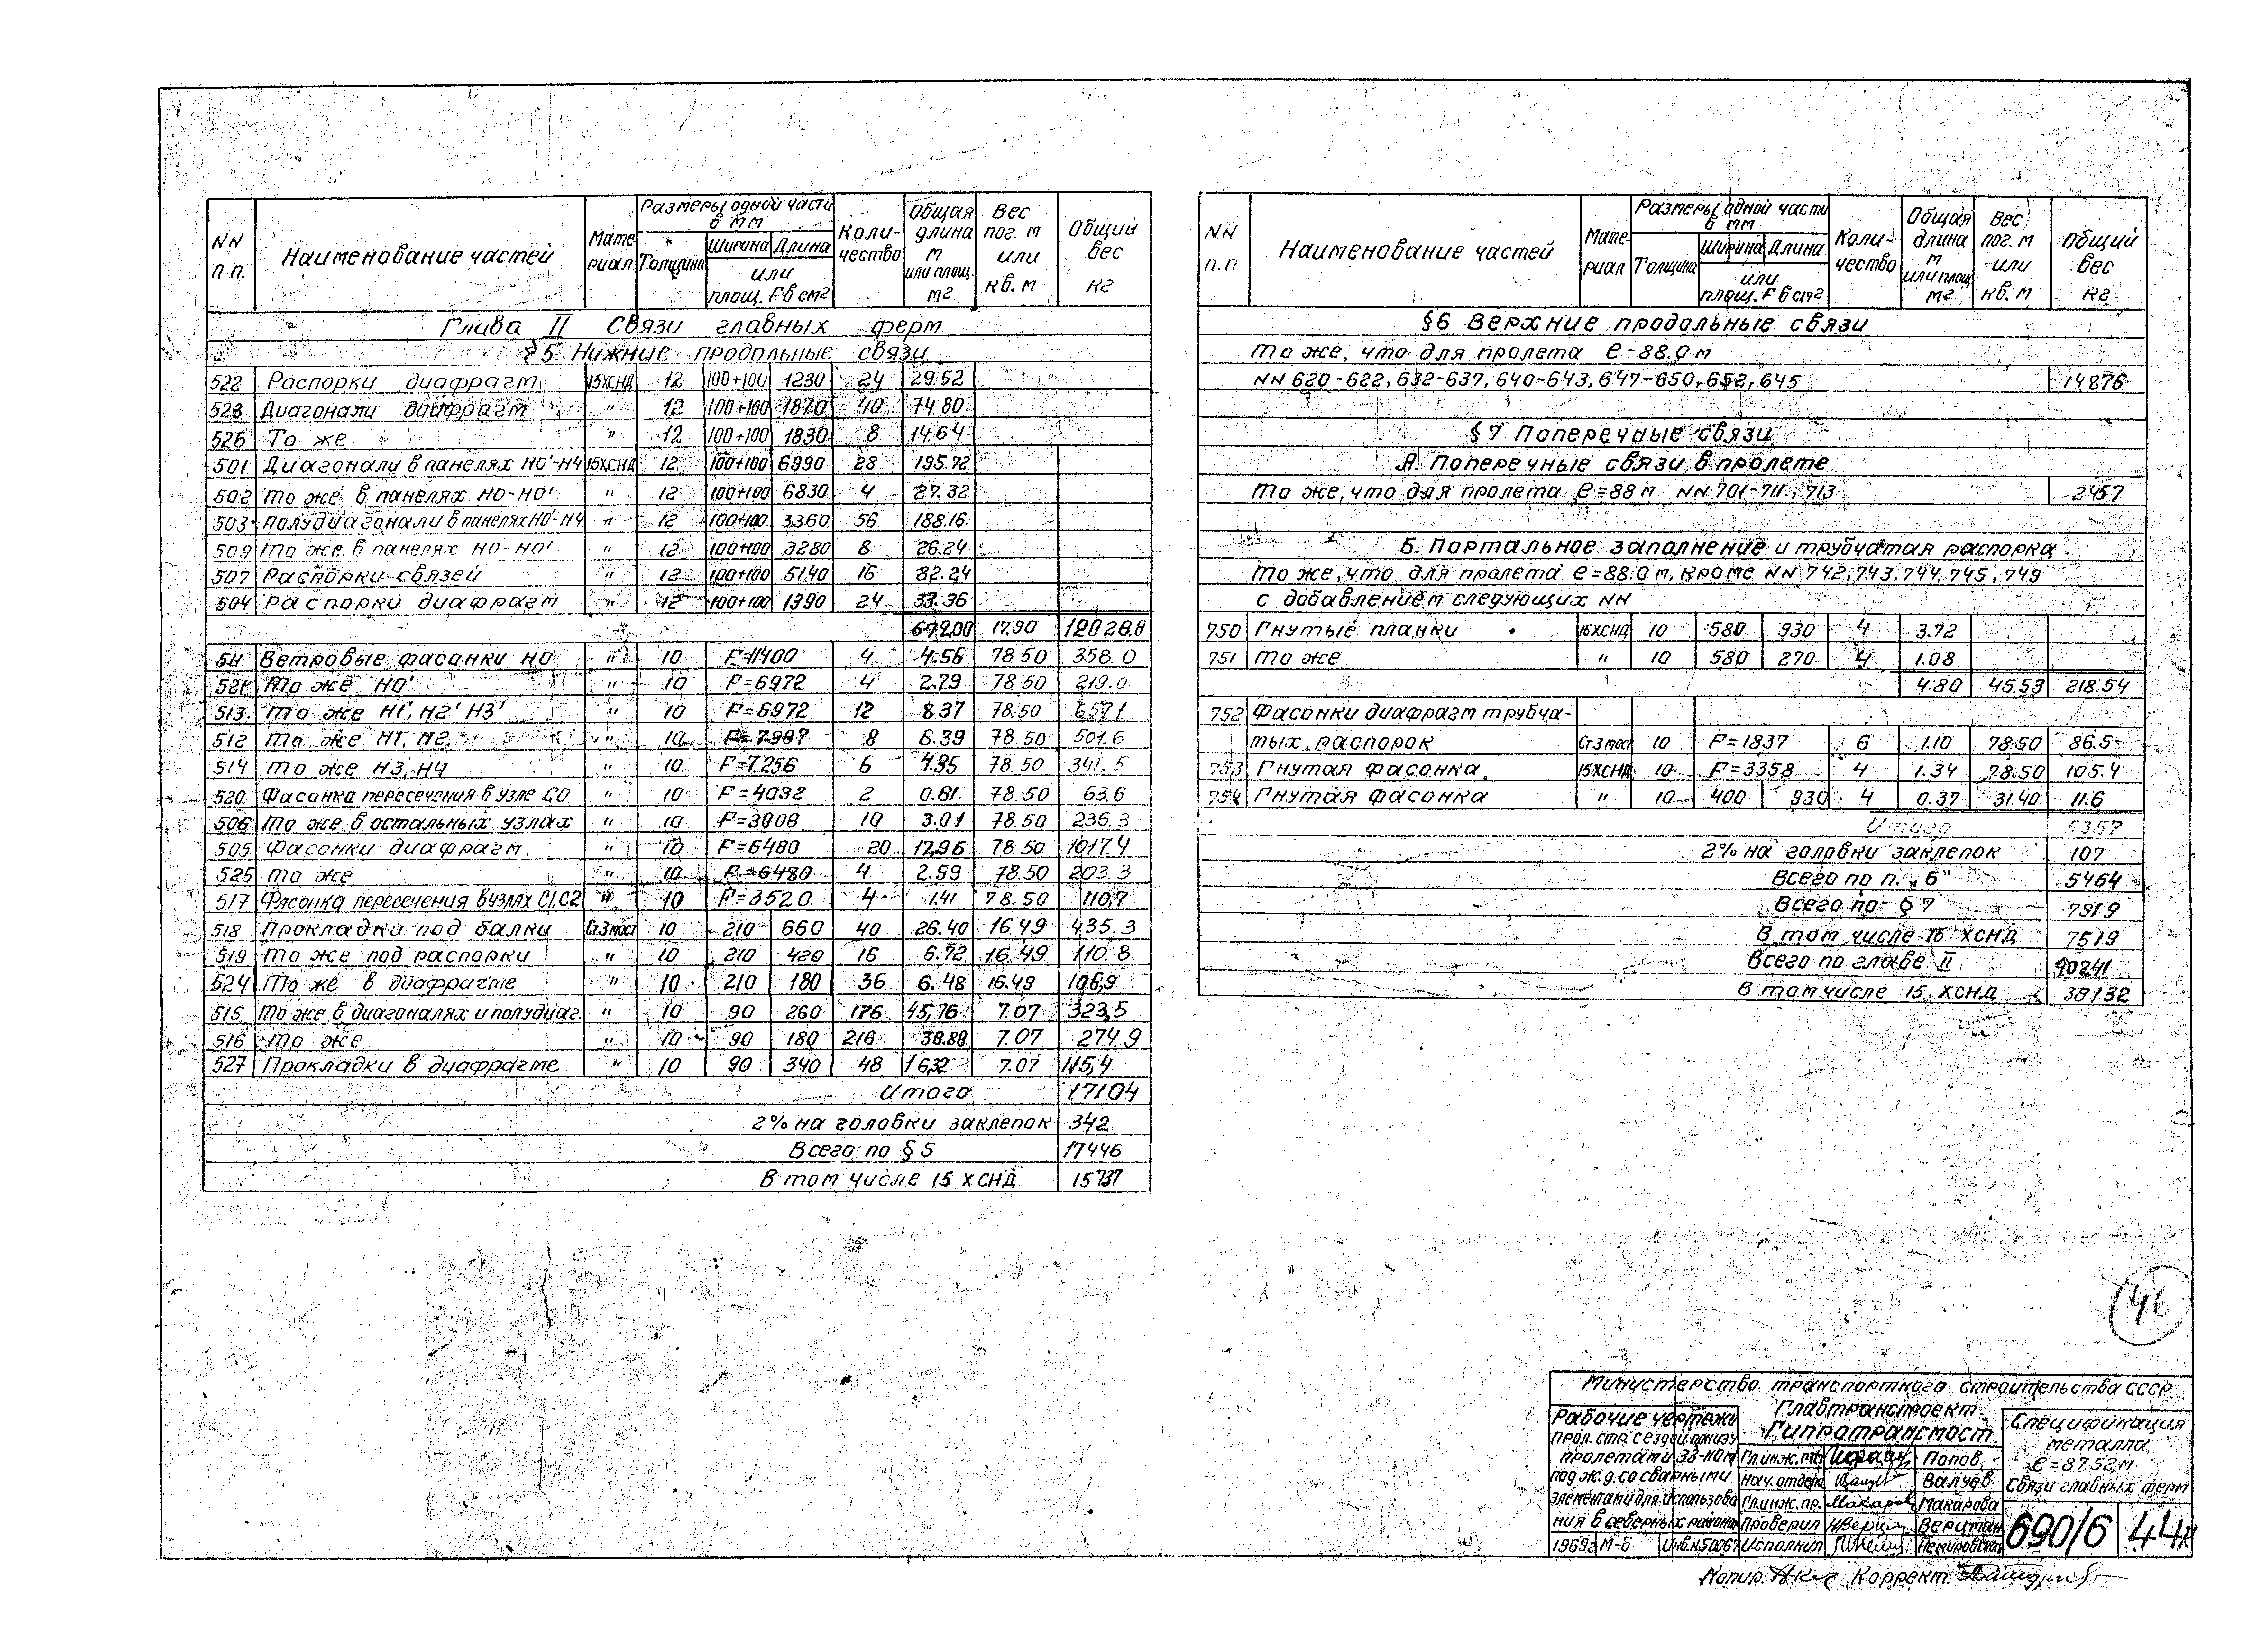 NN п.п. Наименование частей Материал Размеры одной части в мм Толщина Ширина Длина или площ. F в см2 Количество Общая длина м или площ. м2 Вес пог. м или кв. м Общий вес кг
Глава II Связи главных ферм
§5 Нижние продольные связи
522 Распорки диафрагм 15ХСНД 12 100+100 1230 24 29.52
523 Диагонали диафрагм " 12 100+100 1870 40 74.80
526 То же " 12 100+100 1830 8 14.64
501 Диагонали в панелях Н0'-Н4 15ХСНД 12 100+100 6990 28 195.72
502 то же в панелях Н0-Н0' " 12 100+100 6830 4 27.32
503 полудиагонали в панелях Н0'-Н4 " 12 100+100 3360 56 188.16
509 то же в панелях Н0-Н0' " 12 100+100 3280 8 26.24
507 Распорки связей " 12 100+100 5140 16 82.24
504 Распорки диафрагм " 12 100+100 1390 24 33.36
672.00 17.90 12028.8
511 Ветровые фасонки Н0 " 10 F=11400 4 4.56 78.50 358.0
521 То же Н0' " 10 F=6972 4 2.79 78.50 219.0
513 То же Н1', Н2' Н3' " 10 F=6972 12 8.37 78.50 657.1
512 то же Н1, Н2, " 10 F=7987 8 6.39 78.50 501.6
514 то же Н3, Н4 " 10 F=7256 6 4.35 78.50 341.5
520 Фасонка пересечения в узле С0 " 10 F=4032 2 0.81 78.50 63.6
506 то же в остальных узлах " 10 F=3008 10 3.01 78.50 236.3
505 Фасонки диафрагм " 10 F=6480 20 12.96 78.50 1017.4
525 то же " 10 F=6480 4 2.59 78.50 203.3
517 Фасонка пересечения в узлах С1, С2 " 10 F=3520 4 1.41 78.50 110,7
518 Прокладки под балки Ст.3 мост 10 210 660 40 26.40 16.49 435.3
519 то же под распорки " 10 210 420 16 6.72 16.49 110.8
524 То же в диафрагме " 10 210 180 36 6.48 16.49 106,9
515 То же в диагоналях и полудиаг. " 10 90 260 176 45,76 7.07 323,5
516 то же " 10 90 180 216 38.88 7.07 274.9
527 Прокладки в диафрагме " 10 90 340 48 16,32 7.07 115,4
Итого 17104
2% на головки заклепок 342
Всего по §5 17446
В том числе 15 ХСНД 15737
NN п.п Наименование частей Материал Размеры одной части в мм Толщина Ширина Длина или площ. F в см2 Количество Общая длина м или площ м2 Вес пог. м или кв. м Общий вес кг
§6 Верхние продольные связи
то же, что для пролета ℓ-88.0 м
NN 620-622, 632-637, 640-643, 647-650, 652, 645 14876
§7 Поперечные связи
А. Поперечные связи в пролете
То же, что для пролета ℓ=88 м NN 701-711, 713 2457
Б. Портальное заполнение и трубчатая распорка
То же, что для пролета ℓ=88.0 м, кроме NN 742, 743, 744, 745, 749
с добавлением следующих NN
750 Гнутые планки 15ХСНД 10 580 930 4 3.72
751 то же " 10 580 270 4 1.08
4.80 45.53 218.54
752 Фасонки диафрагм трубча-
тых распорок Ст3 мост 10 F=1837 6 1.10 78.50 86.5
753 Гнутая фасонка 15ХСНД 10 F=3358 4 1.34 78.50 105.4
754 Гнутая фасонка " 10 400 930 4 0.37 31.40 11.6
Итого 5357
2% на головки заклепок 107
Всего по п. „Б" 5464
Всего по §7 7919
В том числе 15 ХСНД 7519
Всего по главе II 40241
В том числе 15 ХСНД 38132
Министерство транспортного строительства СССР
Главтранспроект
Гипротрансмост
Рабочие чертежи
прол. стр. с ездой понизу
пролетами 33-110 м
под ж.д. со сварными
элементами для использова
ния в северных районах
1969г М-б Инв.N
Гл.инж. Попов
Нач. отдела Валуев
Гл.инж. пр. Макарова
Проверил Верцман
Исполнил Немировская
Спецификация
металла
ℓ=87.52 м
Связи главных ферм
690/6 44
Копир. Коррект.